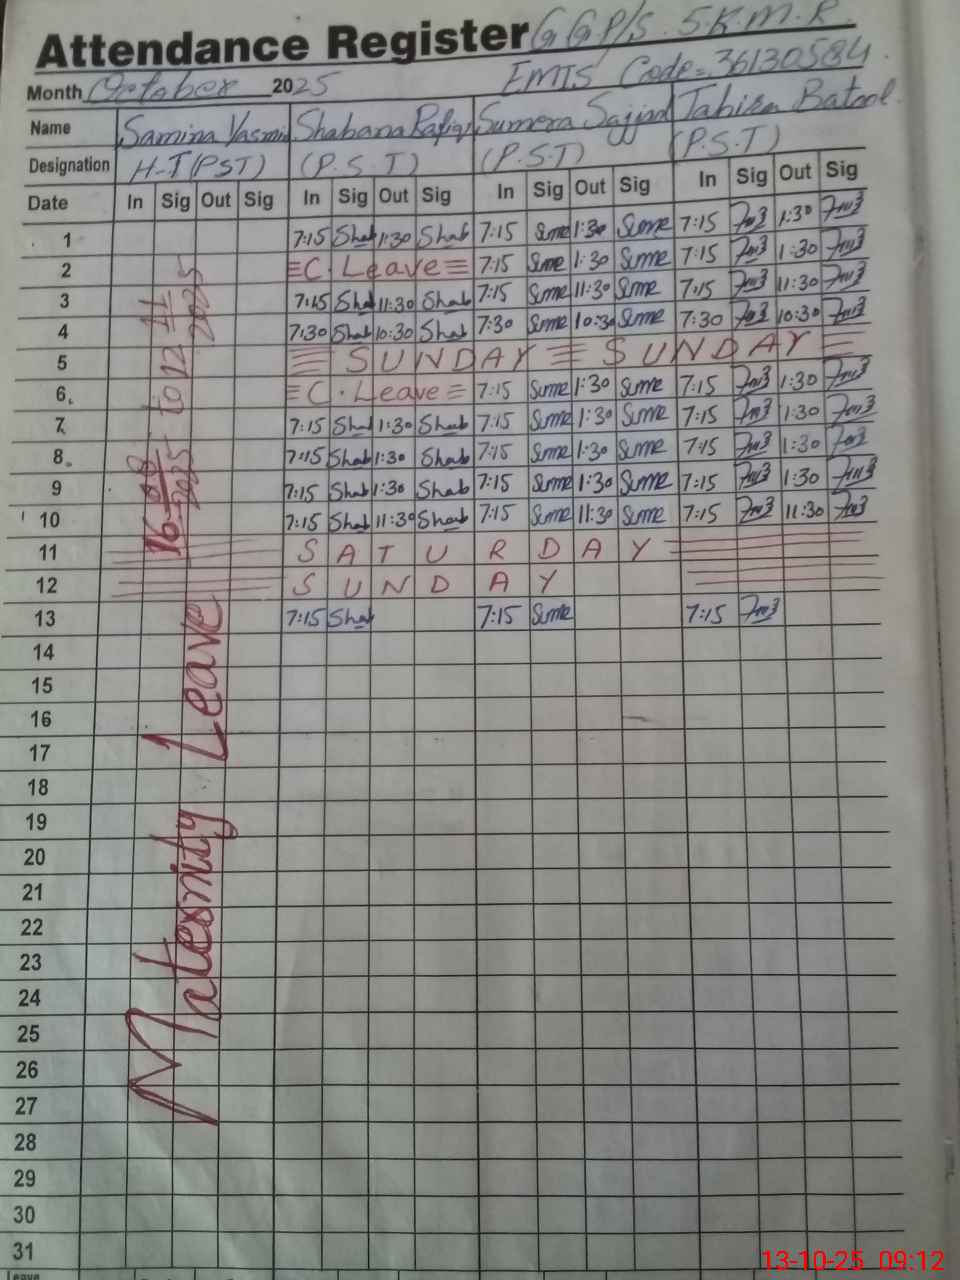 Attendance Register G G P/S . S.K.M.R.
Month October 2025 EMIS Code= 36130584.
Name Samina Yasmin Shabana Rafiq Sumera Sajjad Tahira Batool.
Designation H-T (PST) (P.S.T) (P.S.T) (P.S.T)
Date In Sig Out Sig In Sig Out Sig In Sig Out Sig In Sig Out Sig
1 7:15 Shab 1:30 Shab 7:15 Sume 1:30 Sume 7:15 1:30
2 C. Leave 7:15 Sume 1:30 Sume 7:15 1:30
3 7:15 Shab 11:30 Shab 7:15 Sume 11:30 Sume 7:15 11:30
4 7:30 Shab 10:30 Shab 7:30 Sume 10:30 Sume 7:30 10:30
5 SUNDAY SUNDAY
6 C. Leave 7:15 Sume 1:30 Sume 7:15 1:30
7 7:15 Shab 1:30 Shab 7:15 Sume 1:30 Sume 7:15 1:30
8 7:15 Shab 1:30 Shab 7:15 Sume 1:30 Sume 7:15 1:30
9 7:15 Shab 1:30 Shab 7:15 Sume 1:30 Sume 7:15 1:30
10 7:15 Shab 11:30 Shab 7:15 Sume 11:30 Sume 7:15 11:30
11 S A T U R D A Y
12 S U N D A Y
13 7:15 Shab 7:15 Sume 7:15
14
15
16
17
18
19
20
21
22
23
24
25
26
27
28
29
30
31
Maternity Leave 16-08-2025 to 12 11 2025
Leave
13-10-25 09:12